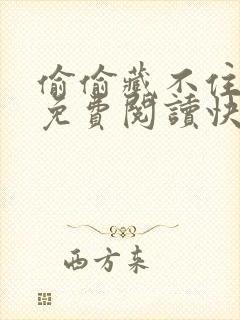 偷偷藏不住
免費閱讀快
西方东